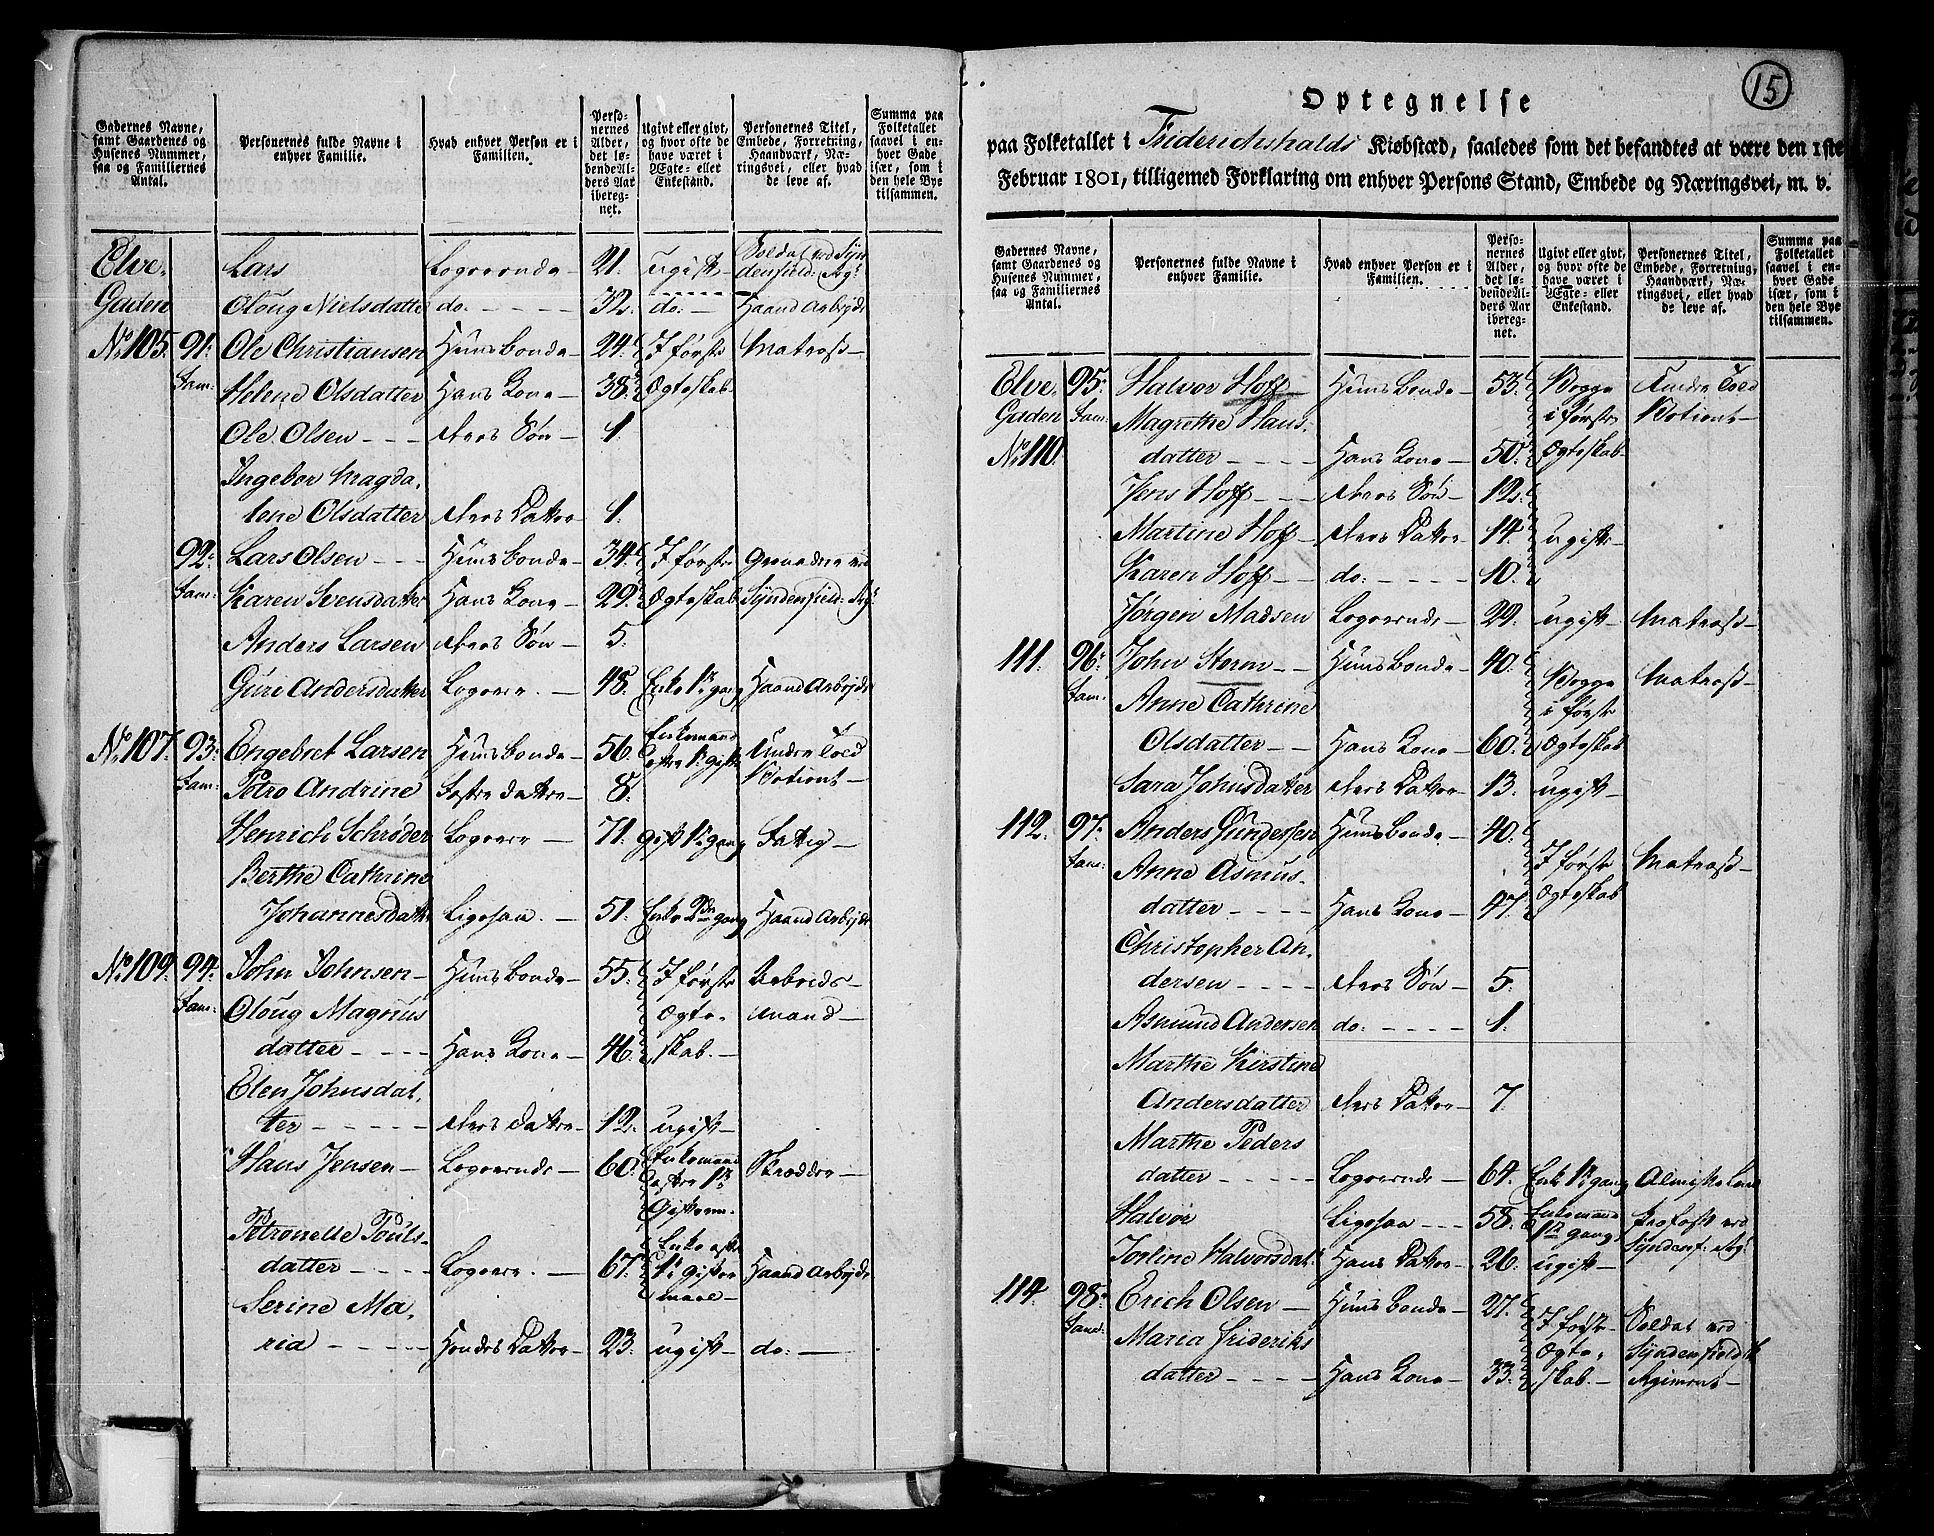 Gadernes Navne, samt Gaardenes og Husenes Nummer, saa og Familiernes Antal.
Personernes fulde Navne i enhver Familie.
Hvad enhver Person er i Familien.
Personernes Alder, det løbende Alders Aar iberegnet.
Ugivt eller givt, og hvor ofte de have været i Ægte- eller Enkestand.
Personernes Titel, Embede, Forretning, Haandværk, Næringsvei, eller hvad de leve af.
Summa paa Folketallet saavel i enhver Gade især, som i den hele Bye tilsammen.
Elve- Lars Logerende 21. ugift Soldat ved Syndenfield: Rg:
Gaden Oloug Nielsdatter do. 32. do. Haand Arbeyde
No. 105. 91. Ole Christiansen Huusbonde 24. I første Matros
Fam: Helene Olsdatter Hans Kone 38. Ægteskab
Ole Olsen deres Søn 1.
Ingebor Magda-
lene Olsdatter deres Datter 1.
92. Lars Olsen Huusbonde 34. I første Grenadeer ved
Fam: Karen Svensdatter Hans Kone 29. Ægteskab Syndenfield: Rg:
Anders Larsen deres Søn 5.
Guri Andersdatter Logerer 48. Enke 1e gang Haand Arbeyde
No. 107. 93. Engebret Larsen Huusbonde 56. Enkemand efter 1e Gifte Under Told
Fam: Petro Andrine Foster datter 8. Betient
Henrich Schrøder Logerer 71. gift 1e gang Fattig
Berthe Cathrine
Johannesdatter Ligesaa 51. Enke 2den gang Haand Arbeyde
No. 109. 94. John Johnsen Huusbonde 55. I første Arbeids-
Fam: Oloug Magnus Ægte- mand
datter Hans Kone 46. skab.
Elen Johnsdat-
ter deres datter 12. ugift
Hans Jensen Logerende 60. Enkemand efter 1te Giftemaal Skrædder
Petronelle Pouls-
datter Logerer 67. Enke efter 1e Giftermaal Haand Arbeyde
Serine Ma-
ria Hendes Datter 23. ugift do:
15
Optegnelse
paa Folketallet i Friderichshalds Kiøbstæd, saaledes som det befandtes at være den 1ste
Februar 1801, tilligemed Forklaring om enhver Persons Stand, Embede og Næringsvei, m. v.
Gadernes Navne, samt Gaardenes og Husenes Nummer, saa og Familiernes Antal.
Personernes fulde Navne i enhver Familie.
Hvad enhver Person er i Familien.
Personernes Alder, det løbende Alders Aar iberegnet.
Ugivt eller givt, og hvor ofte de have været i Ægte- eller Enkestand.
Personernes Titel, Embede, Forretning, Haandværk, Næringsvei, eller hvad de leve af.
Summa paa Folketallet saavel i enhver Gade især, som i den hele Bye tilsammen.
Elve- 95. Halvor Hoff Huusbonde 53. Begge Under Told
Gaden Fam: Magrethe Hans- i første Betient
No. 110. datter Hans Kone 50. Ægteskab
Jens Hoff deres Søn 12.
Martine Hoff deres Datter 14. ugift
Karen Hoff do: 10.
Jørgen Madsen Logerende 29. ugift Matros
111. 96. John Storm Huusbonde 40. Begge Matros
Fam: Anne Cathrine i første
Olsdatter Hans Kone 60. Ægteskab
Sara Johnsdatter deres Datter 13. ugift
112. 97. Anders Gundersen Huusbonde 40. I første Matros
Fam: Anne Asmus-
datter Hans Kone 47. Ægteskab
Christopher An-
dersen deres Søn 5.
Asmund Andersen do: 1.
Marthe Kirstine
Andersdatter deres Datter 7.
Marthe Peders
datter Logerende 64. Enke 1e gang Almisselem
Halvor Ligesaa 58. Enkemand 1te gang Profos ved Syndenf: Rg:
Jorline Halvorsdat: Hans Datter 26. ugift
114. 98. Erich Olsen Huusbonde 27. I første Soldat ved
Fam: Maria Frideriks Ægte- Syndenfieldske
datter Hans Kone 33. skab. Regiment